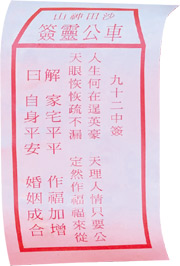 沙田神山
車公靈簽
九十二中簽
人生何在逞英豪 天理人情只要公
天眼恢恢疏不漏 定然作福福來從
解 家宅平平 作福加增
曰 自身平安 婚姻成合